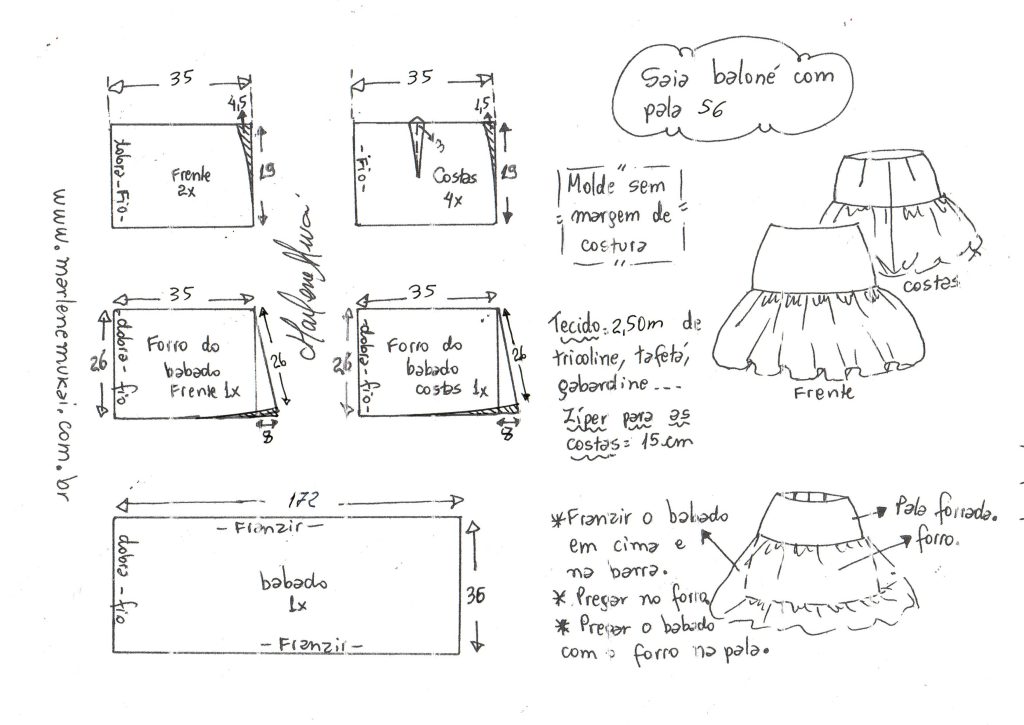 Saia baloné com
pala 56
35
4,5
dobra-Fio-
Frente
2x
19
35
1,5
3
-Fio-
Costas
4x
19
"
Molde sem
margem de
costura
"
costas
Frente
www.marlenemukai.com.br
Marlene Mukai
35
26
-dobra-fio
Forro do
babado
Frente 1x
26
8
35
26
-dobra-fio-
Forro do
babado
costas 1x
26
8
Tecido: 2,50m de
tricoline, tafetá,
gabardine....
Zíper para as
costas = 15cm
172
-Franzir-
dobra-fio
babado
1x
36
-Franzir-
*Franzir o babado
em cima e
na barra.
* Pregar no forro.
* Pregar o babado
com o forro na pala.
Pala forrada.
forro.